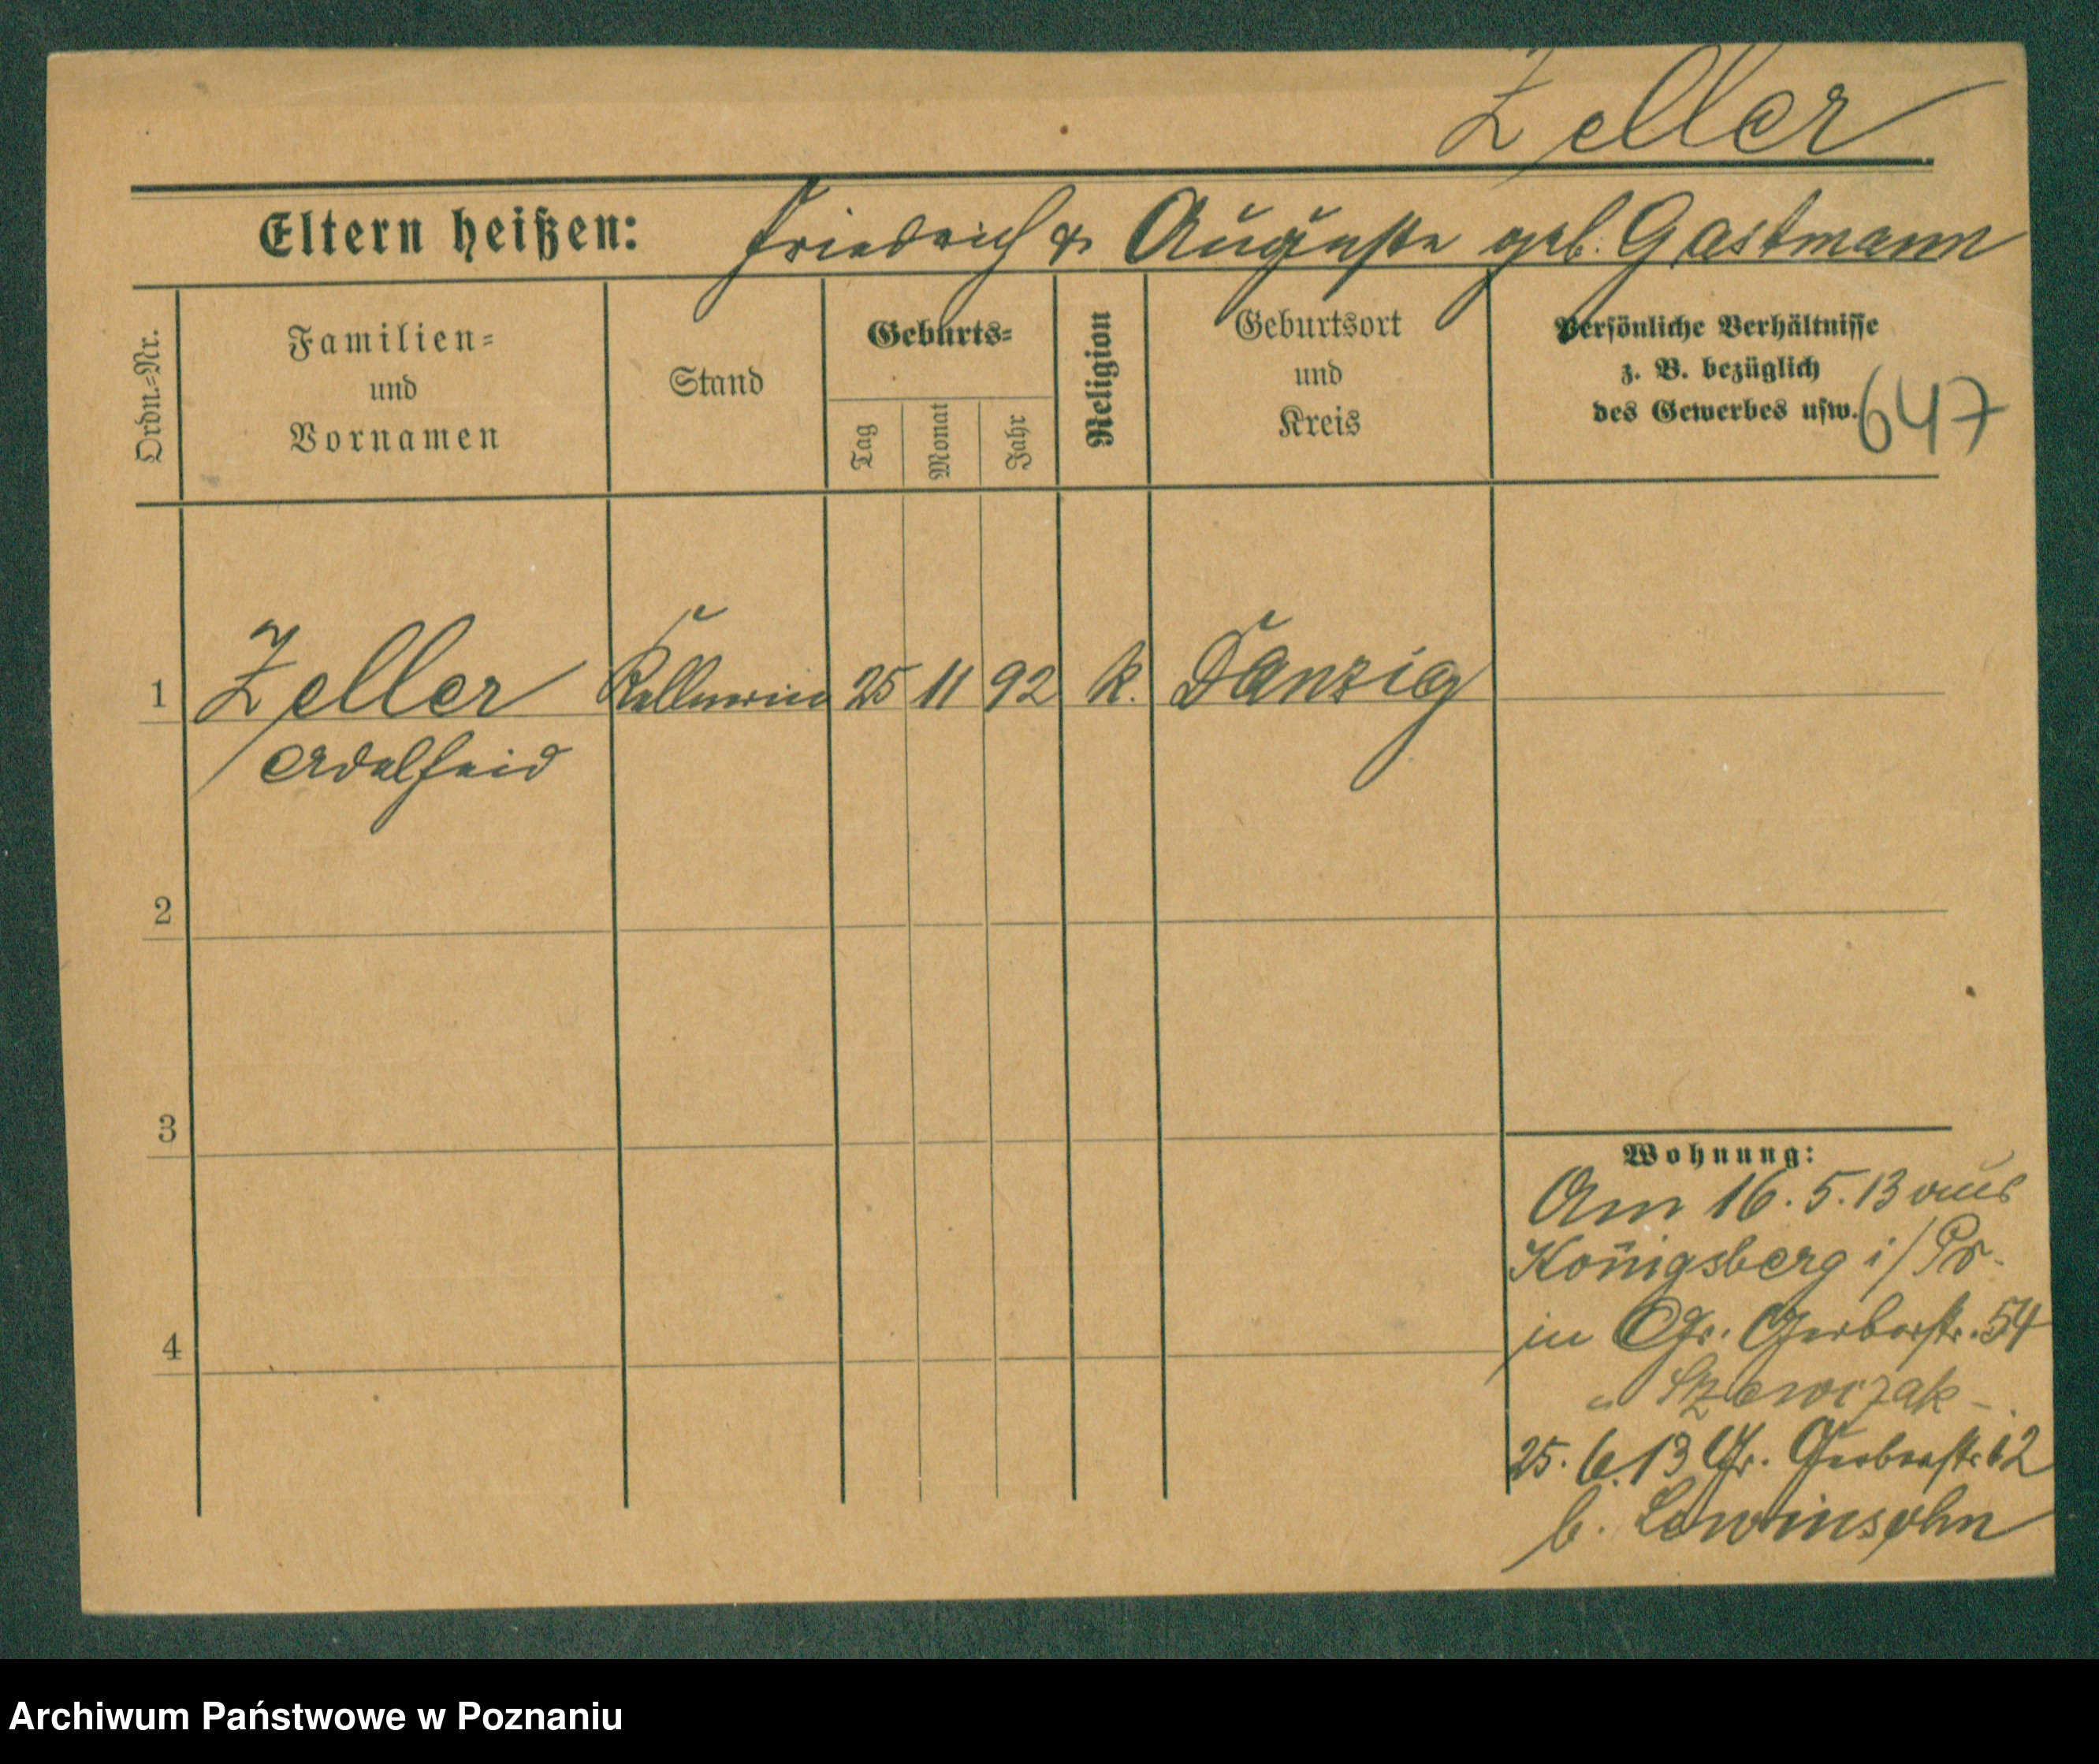 Zeller
Eltern heißen: Friedrich & Auguste geb. Gastmann
Ordn.-Nr.
Familien-
und
Vornamen
Stand
Geburts-
Tag
Monat
Jahr
Religion
Geburtsort
und
Kreis
Persönliche Verhältnisse
z. B. bezüglich
des Gewerbes usw.
647
1 Zeller Kellnerin 25 11 92 k. Danzig
Adelheid
2
3
4
Wohnung:
Am 16.5.13 aus
Königsberg i/Pr.
in Gr. Gerberstr. 54
" Szewczak
25.6.13 Gr. Gerberstr. 12
b. Lewinsohn
Archiwum Państwowe w Poznaniu